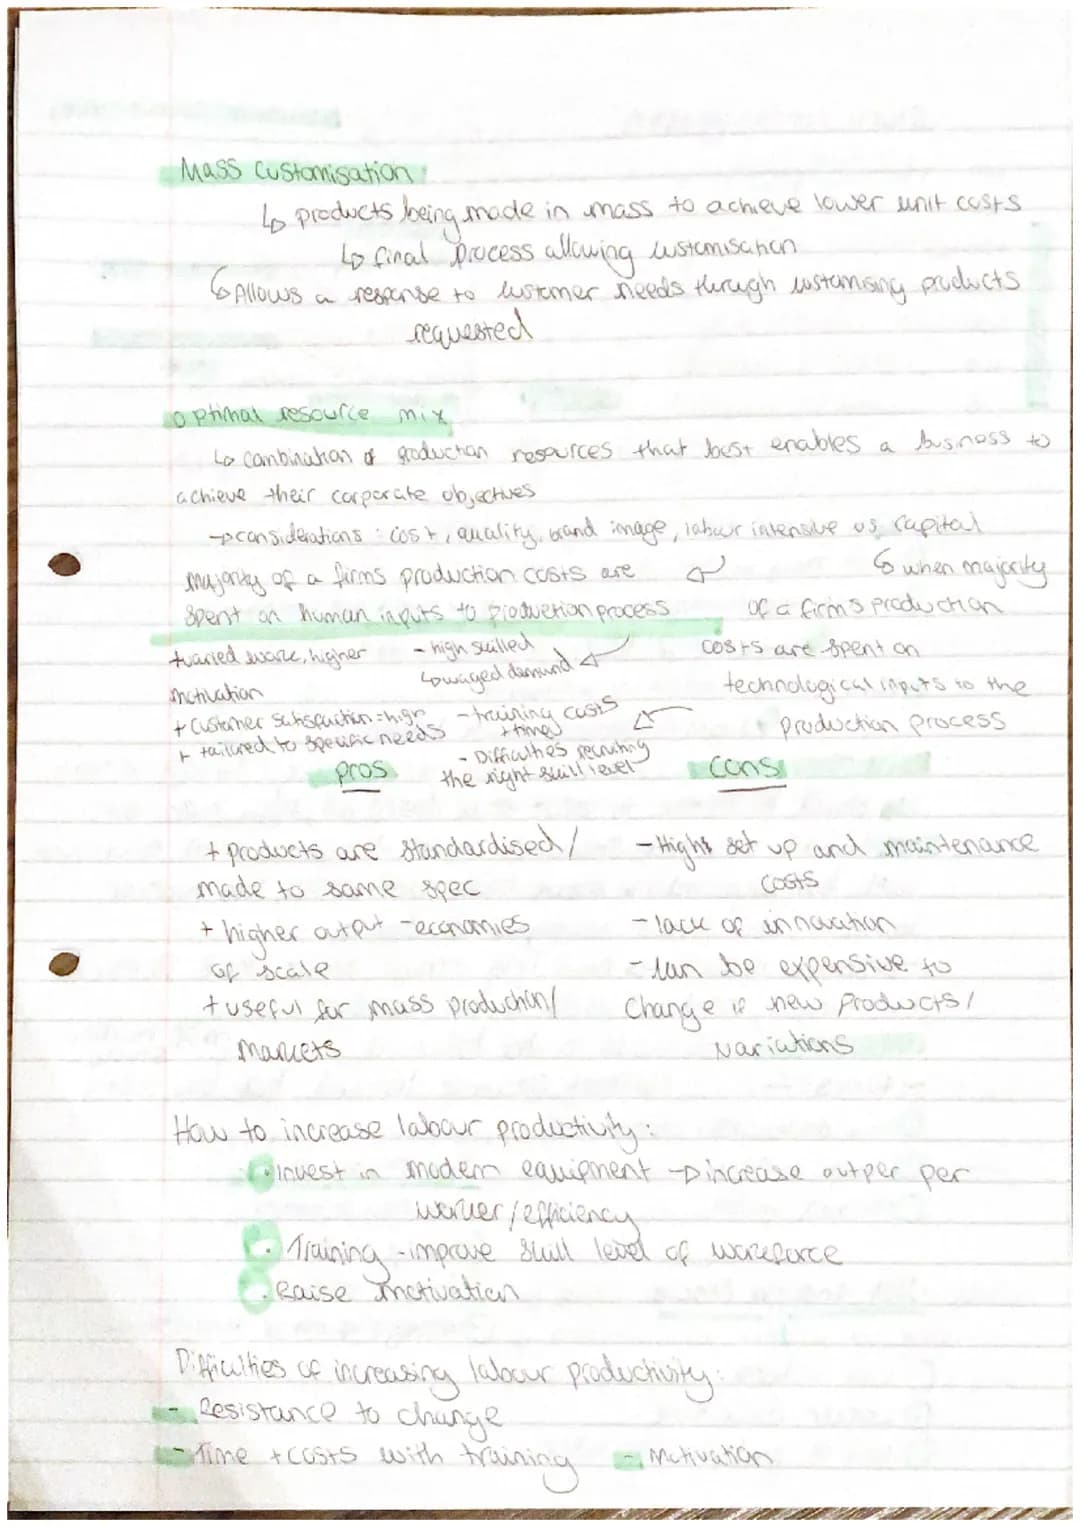 Mass Customisation:
↳ products being made in mass to achieve lower unit costs
↳ final process allowing customisation
↳ Allows a response to customer needs through customising products
requested
optimal resource mix
↳ combination of production resources that best enables a business to
achieve their corporate objectives
→ considerations: cost, quality, brand image, labour intensive vs capital
majority of a firms production costs are
spent on human inputs to production process
↳ when majority
of a firms production
costs are spent on
technological inputs to the
production process
+varied work, higher
motivation
+ customer satisfaction = high
+ tailored to specific needs
- high skilled
↳ waged demand
- training costs
+ time
- Difficulties recruiting
the right skill level
pros
cons
+ products are standardised/
made to same spec
+ higher output - economies
of scale
+ useful for mass production/
markets
- High set up and maintenance
costs
- lack of innovation
- can be expensive to
change if new products/
variations
How to increase labour productivity:
• invest in modern equipment → increase outper per
worker/efficiency
• Training - improve skill level of workforce
• Raise motivation
Difficulties of increasing labour productivity:
- Resistance to change
- Time + costs with training - Motivation